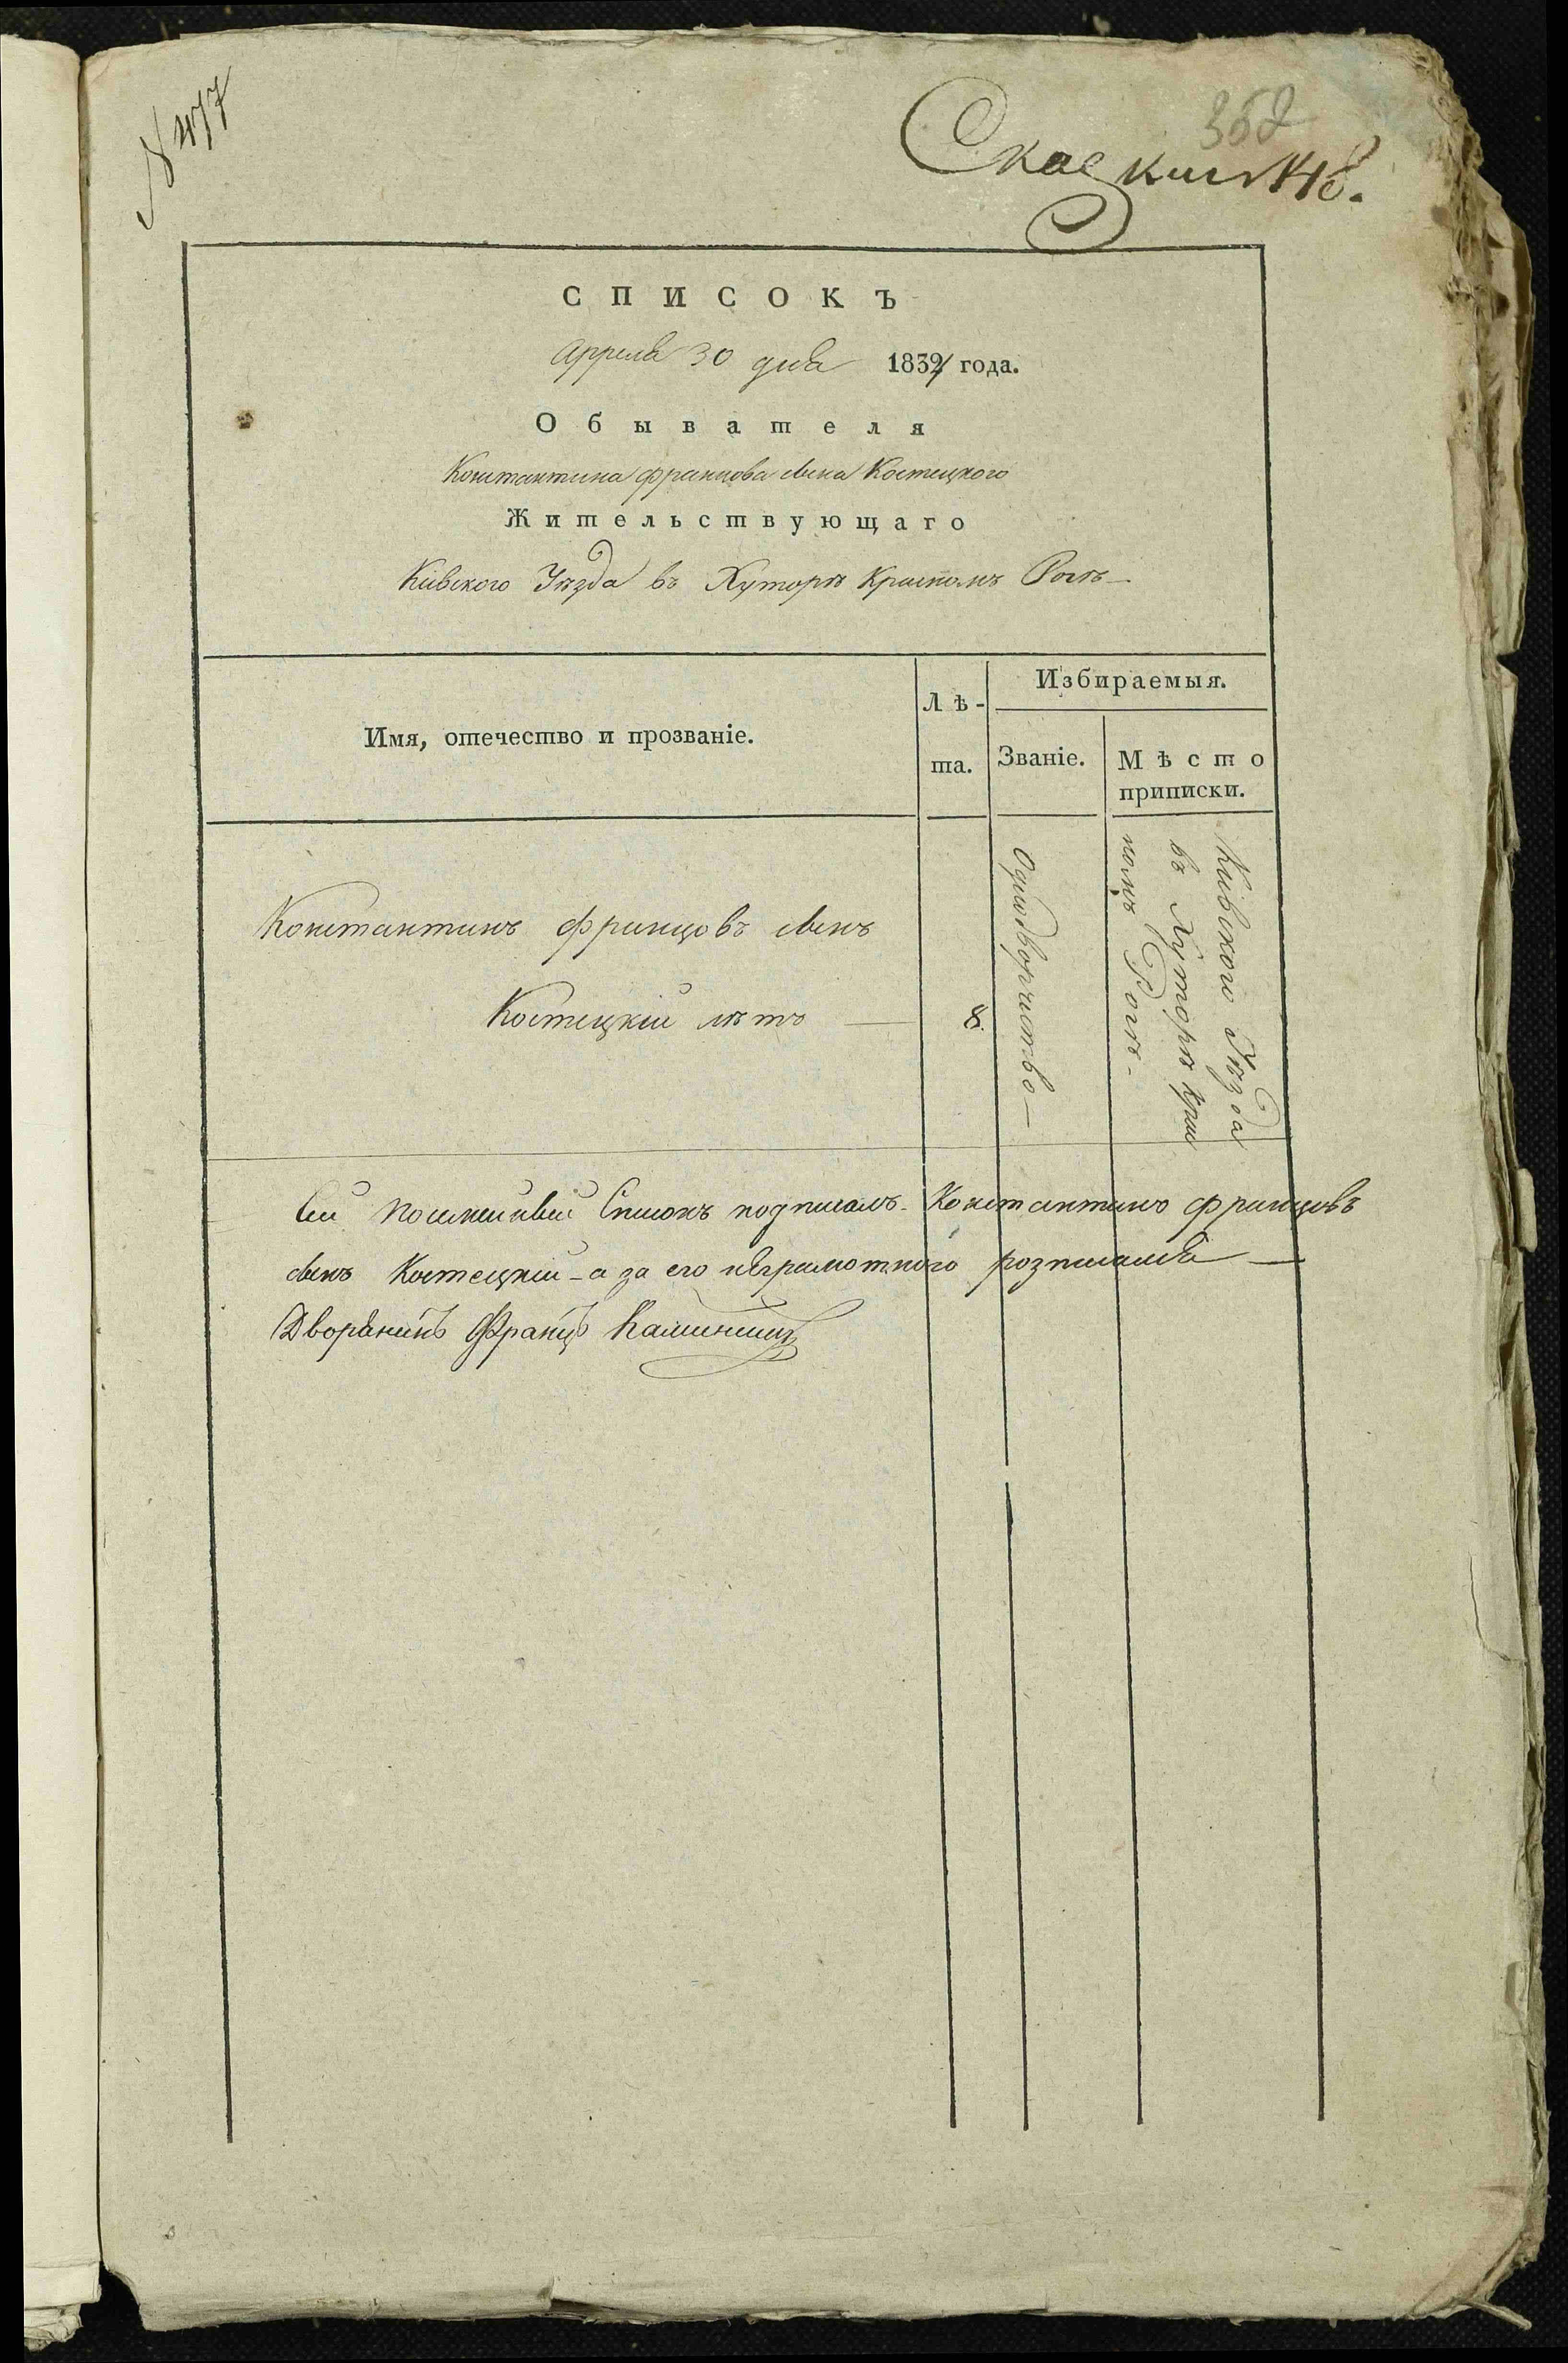 N 477
352
СПИСОКЪ
Аррѣля 30 дня 1832 года.
Обывателя
Константина францова сына Костецкого
Жительствующаго
Кіевского Уѣзда въ Хуторѣ Красномъ Рогѣ
Имя, отечество и прозваніе.
Лѣ-
та.
Избираемыя.
Званіе.
Мѣсто
приписки.
Константинъ францовъ сынъ
Костецкій лѣтъ — 8.
Однодворчиство —
Кіевского Уѣзда
въ Хуторѣ Крас
номъ Рогѣ -
Сей посемейный Списокъ подписалъ Константинъ францовъ
сынъ Костецкій - а за его неграмотного розписался —
Дворянинъ Францъ